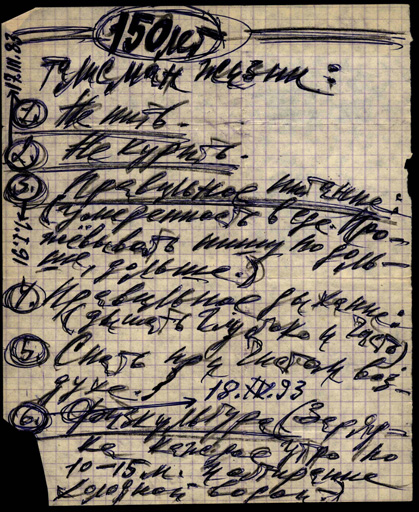 150 лет
17.III.83
Талисман жизни:
1. Не пить.
2. Не курить.
3. Правильное питание:
(умеренность в еде. Про-
жёвывать пищу по доль-
ше, дольше.)
4. Правильное дыхание:
(дышать глубоко и часто)
5. Спать при чистом воз-
духе.)
93
6. Физкультура (Заряд-
ка каждое утро по
10-15 м. и обтирание
холодной водой.)